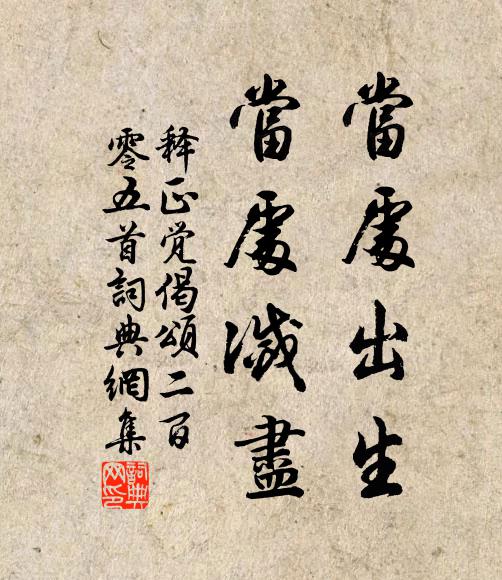 當處出生
當處滅盡
释正觉偈頌二百
零五首詞典網集
詞典網印